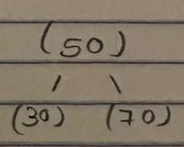 (50)
/ \
(30) (70)